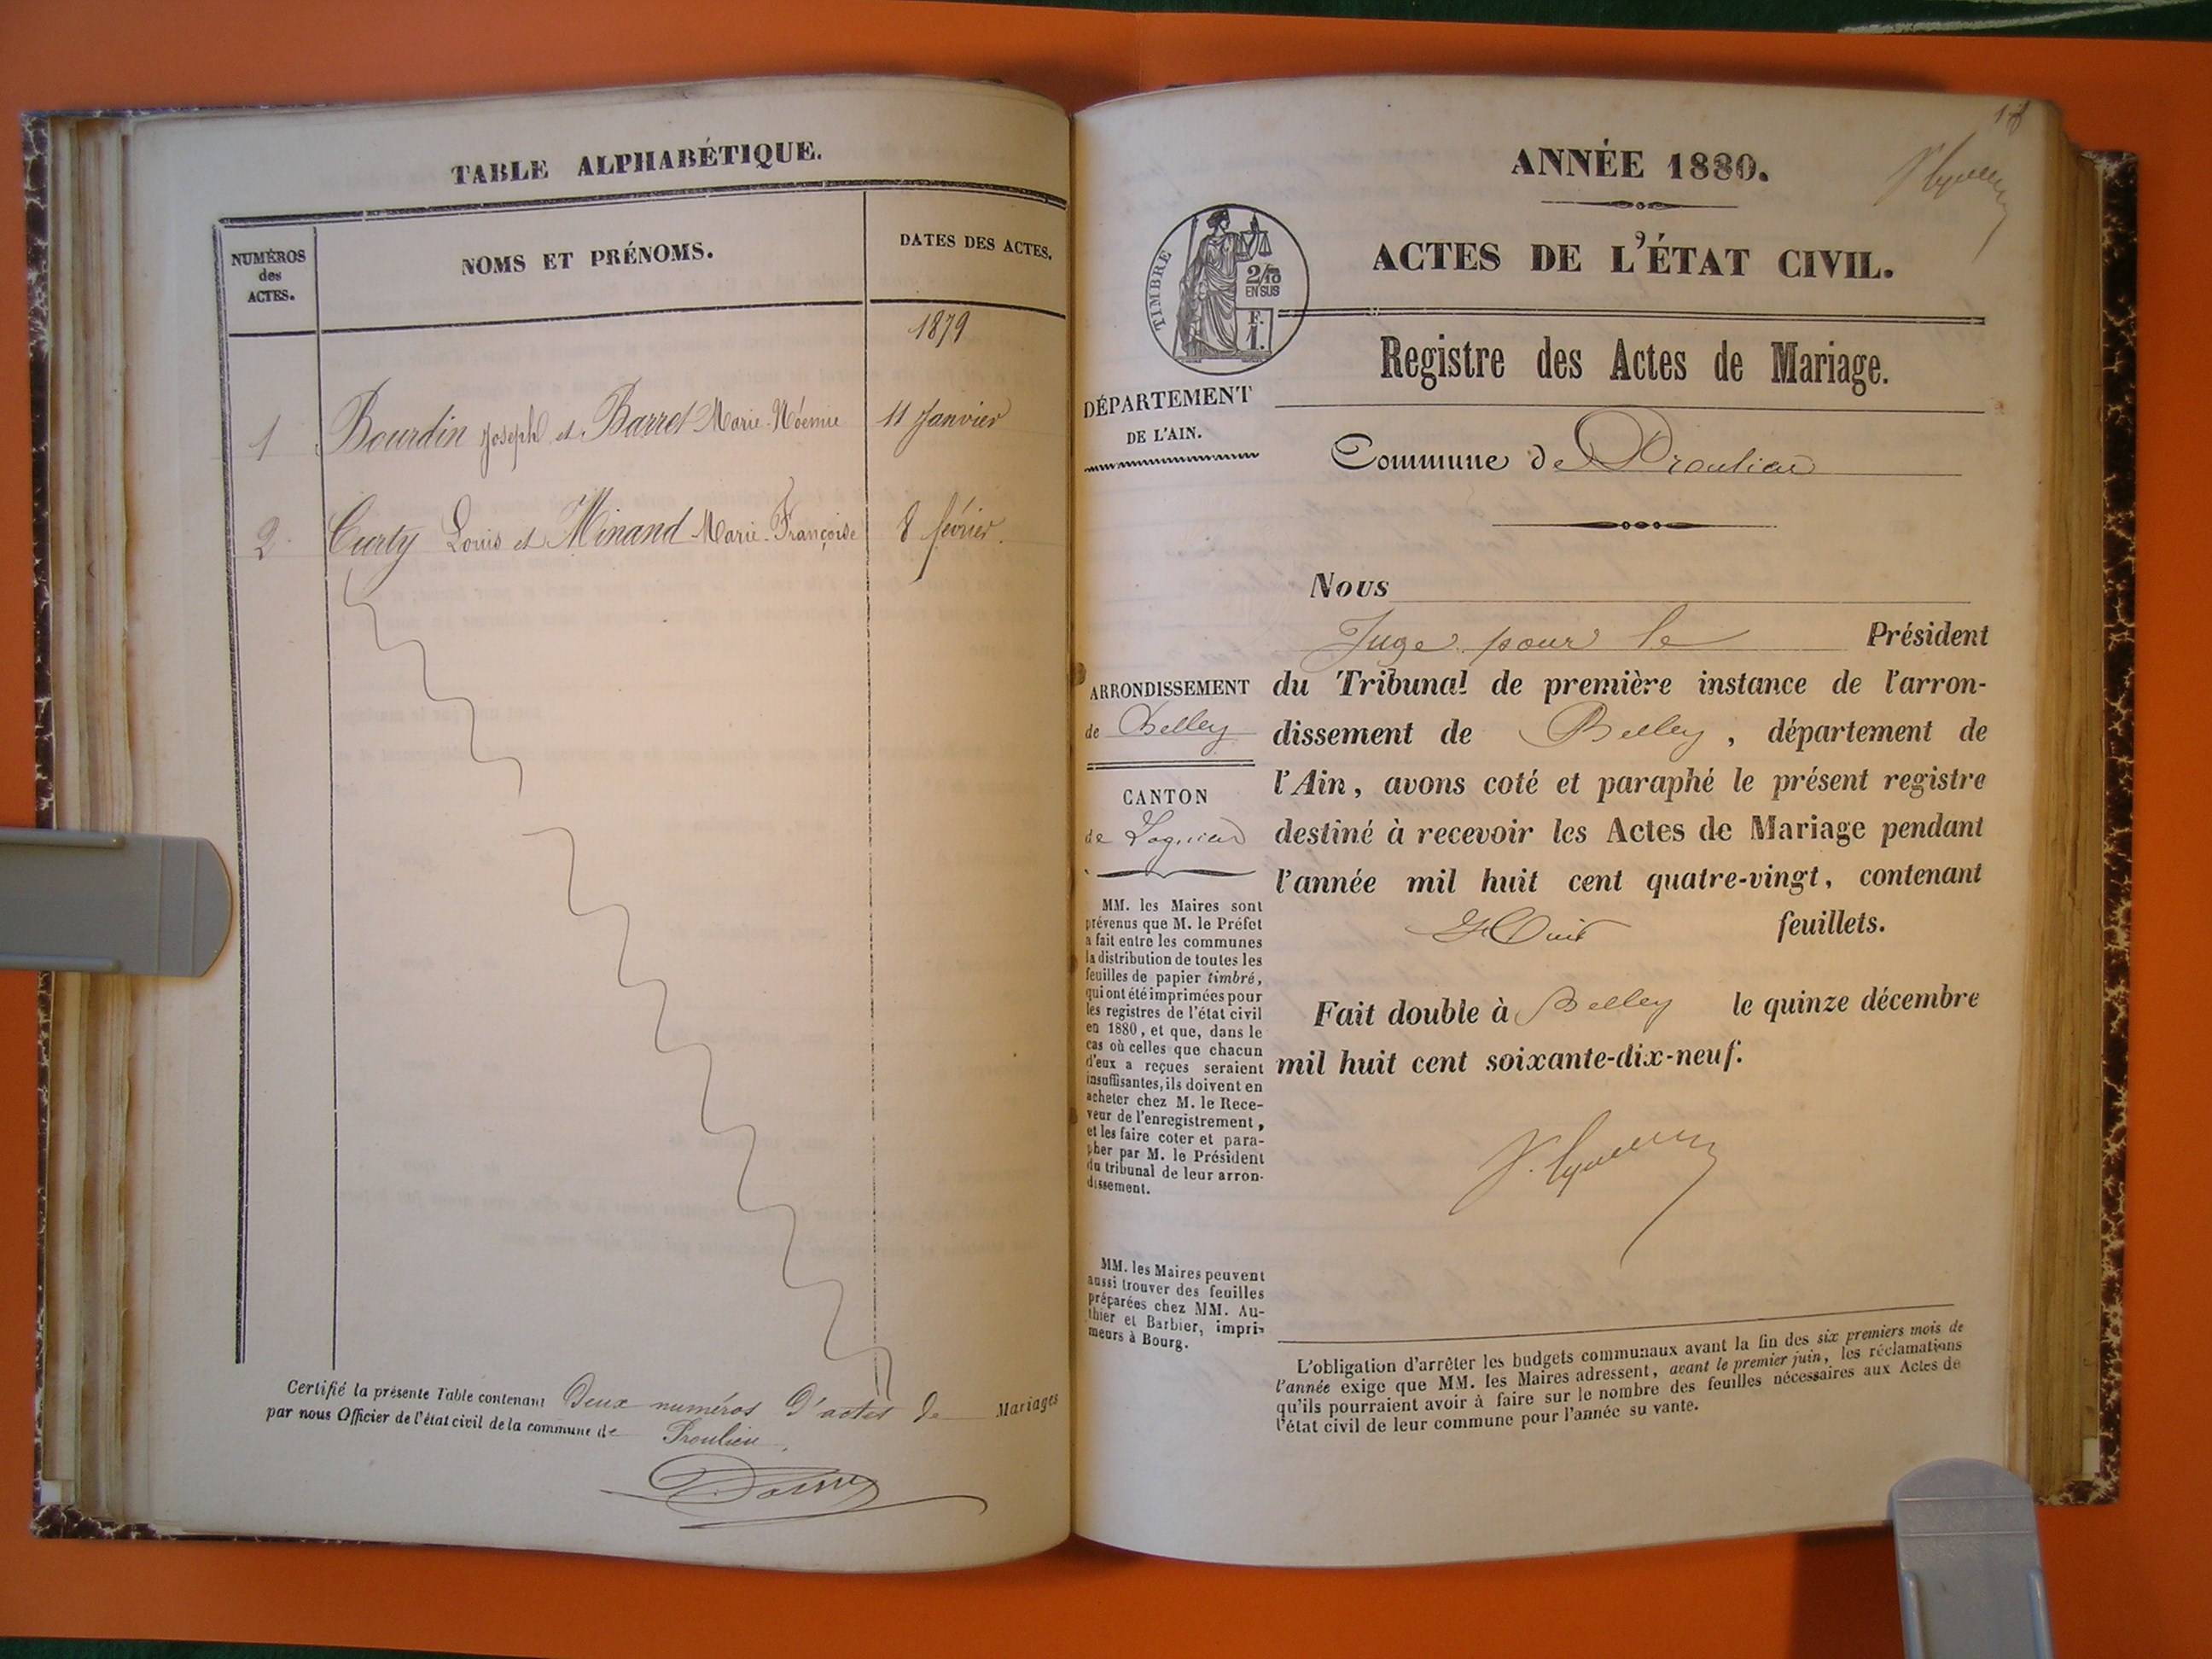 TABLE ALPHABÉTIQUE.
NUMÉROS
des
ACTES.
NOMS ET PRÉNOMS.
DATES DES ACTES.
1879
1 Bourdin Joseph et Barret Marie-Noémie 11 Janvier
2 Curty Louis et Minand Marie-Françoise 8 février.
Certifié la présente Table contenant Deux numéros d'actes de Mariages
par nous Officier de l'état civil de la commune de Proulieu.
ANNÉE 1880.
ACTES DE L'ÉTAT CIVIL.
TIMBRE
2/10
EN SUS
F.
1.
Registre des Actes de Mariage.
DÉPARTEMENT
DE L'AIN.
Commune de Proulieu
Nous
Juge pour le Président
du Tribunal de première instance de l'arron-
dissement de Belley, département de
l'Ain, avons coté et paraphé le présent registre
destiné à recevoir les Actes de Mariage pendant
l'année mil huit cent quatre-vingt, contenant
Huit feuillets.
Fait double à Belley le quinze décembre
mil huit cent soixante-dix-neuf.
ARRONDISSEMENT
de Belley
CANTON
de Lagnieu
MM. les Maires sont
prévenus que M. le Préfet
a fait entre les communes
la distribution de toutes les
feuilles de papier timbré,
qui ont été imprimées pour
les registres de l'état civil
en 1880, et que, dans le
cas où celles que chacun
d'eux a reçues seraient
insuffisantes, ils doivent en
acheter chez M. le Rece-
veur de l'enregistrement,
et les faire coter et para-
pher par M. le Président
du tribunal de leur arron-
dissement.
MM. les Maires peuvent
aussi trouver des feuilles
préparées chez MM. Au-
thier et Barbier, impri-
meurs à Bourg.
L'obligation d'arrêter les budgets communaux avant la fin des six premiers mois de
l'année exige que MM. les Maires adressent, avant le premier juin, les réclamations
qu'ils pourraient avoir à faire sur le nombre des feuilles nécessaires aux Actes de
l'état civil de leur commune pour l'année su vante.